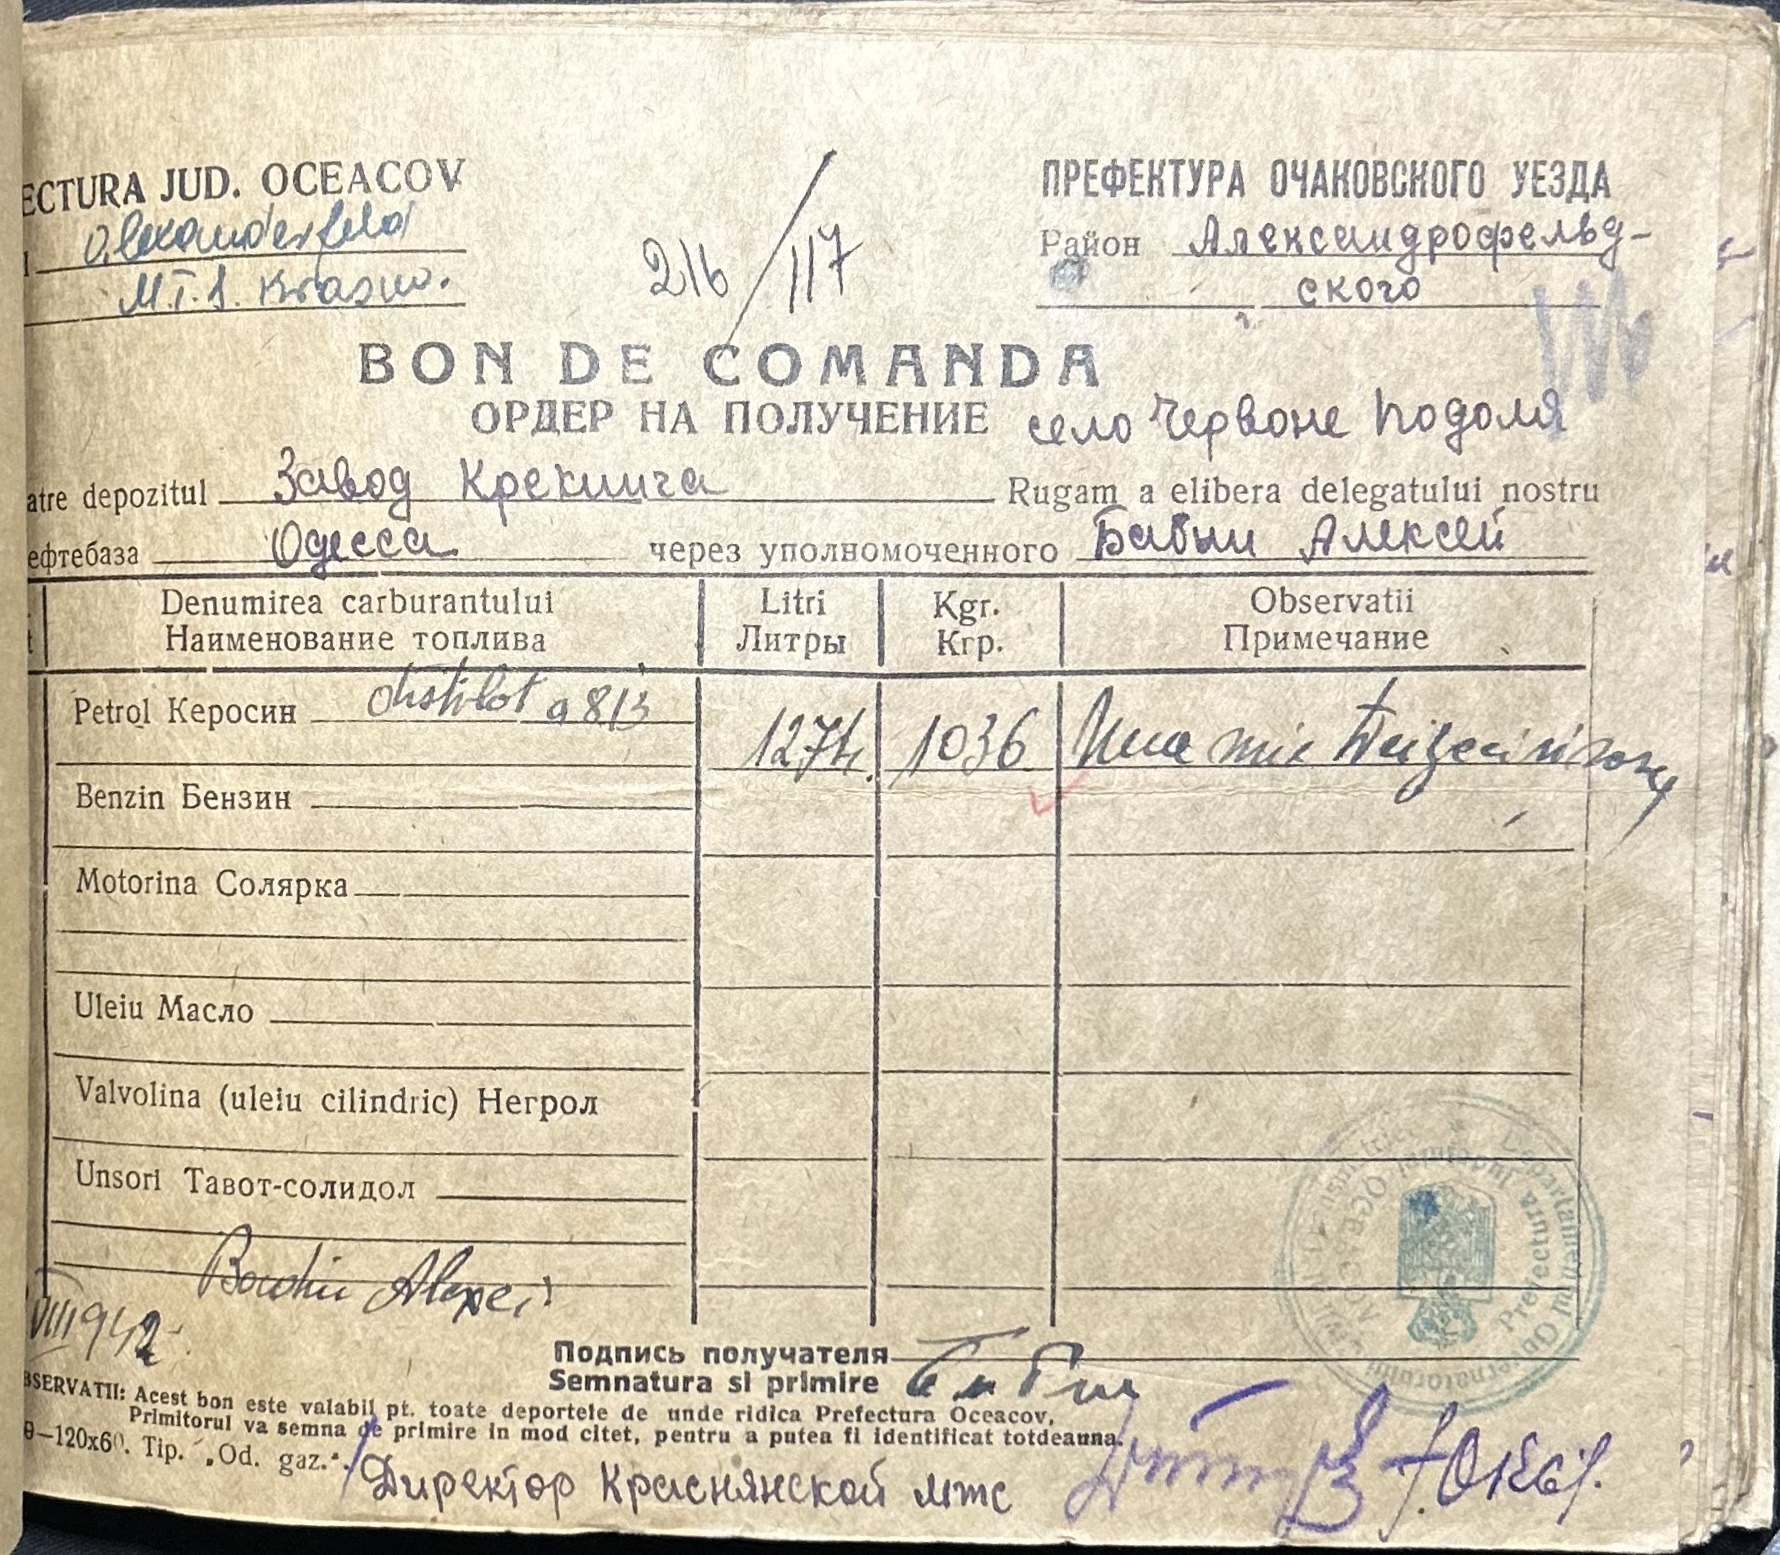 ECTURA JUD. OCEACOV
Alexanderfeld
M.T.S. Krasno.
216/117
ПРЕФЕКТУРА ОЧАКОВСКОГО УЕЗДА
Район Александрофельд-
ского
BON DE COMANDA
ОРДЕР НА ПОЛУЧЕНИЕ село Червоне Подоля
atre depozitul Завод Крекинга Rugam a elibera delegatului nostru
ефтебаза Одесса через уполномоченного Бабии Алексей
Denumirea carburantului Litri Kgr. Observatii
Наименование топлива Литры Кгр. Примечание
Petrol Керосин distilat a 813 1274. 1036 Una mie treizeci si
Benzin Бензин
Motorina Солярка
Uleiu Масло
Valvolina (uleiu cilindric) Негрол
Unsori Тавот-солидол
Alexei
VIII 1942
Подпись получателя
Semnatura si primire
BSERVATII: Acest bon este valabil pt. toate deportele de unde ridica Prefectura Oceacov,
Primitorul va semna de primire in mod citet, pentru a putea fi identificat totdeauna.
0—120x60. Tip. „Od. gaz.“.
Директор Краснянской мтс
Prefectura Judetului OCEACOV